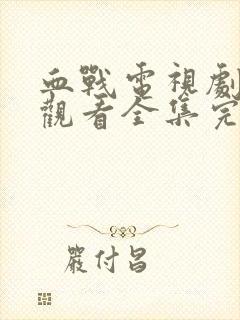 血戰電視劇
觀看全集完
嚴付昌